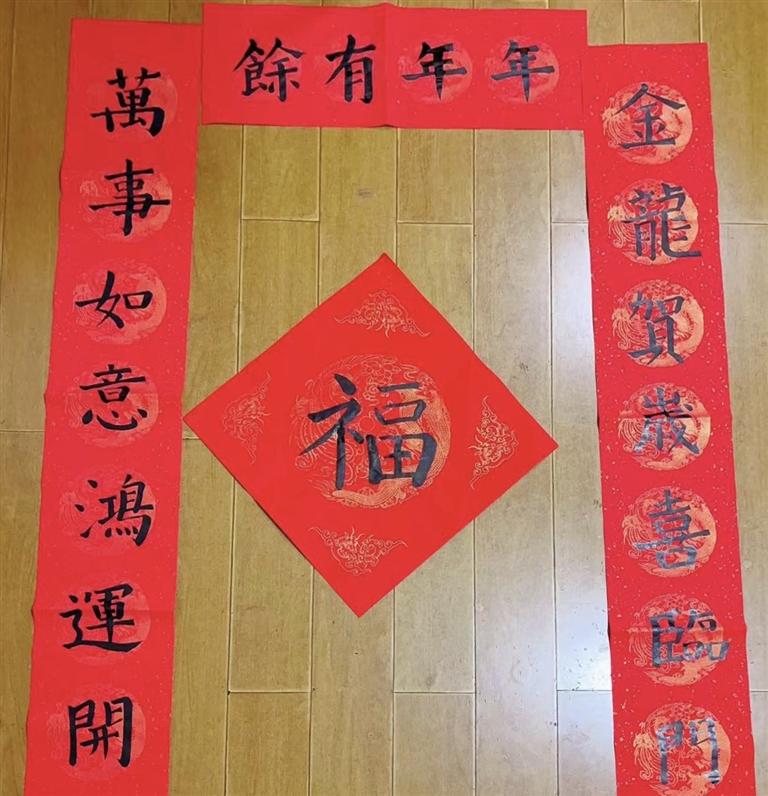 年年有餘
金龍賀歲喜臨門
萬事如意鴻運開
福